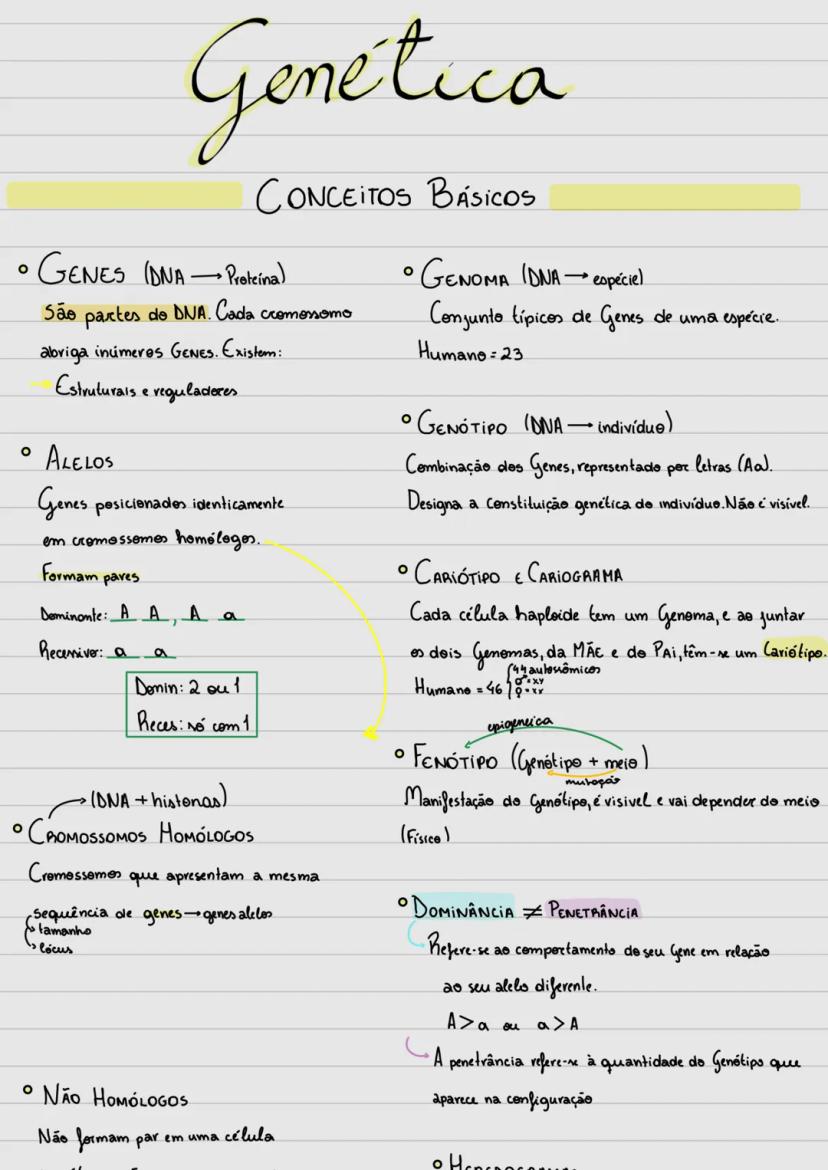 Genética
CONCEITOS BÁSICOS
GENES (DNA → Proteína)
São partes do DNA. Cada cromossomo
abriga inúmeros GENES. Existem:
→ Estruturais e reguladores
ALELOS
Genes posicionados identicamente
em cromossomos homólogos.
Formam pares
Dominante: A A, A a
Recessivo: a a
Domin: 2 ou 1
Reces: só com 1
(DNA + histonas)
CROMOSSOMOS HOMÓLOGOS
Cromossomos que apresentam a mesma
sequência de genes → genes alelos
tamanho
lócus
NÃO HOMÓLOGOS
Não formam par em uma célula
GENOMA (DNA → espécie)
Conjunto típicos de Genes de uma espécie.
Humano = 23
GENÓTIPO (DNA → indivíduo)
Combinação dos Genes, representado por letras (Aa).
Designa a constituição genética do indivíduo. Não é visível.
CARIÓTIPO E CARIOGRAMA
Cada célula haploide tem um Genoma, e ao juntar
os dois Genomas, da MÃE e do PAI, têm-se um Cariótipo.
Humano = 46
44 autossômicos
♂ = XY
♀ = XX
epigeneica
FENÓTIPO (Genótipo + meio)
mutação
Manifestação do Genótipo, é visivel e vai depender do meio
(Físico)
DOMINÂNCIA ≠ PENETRÂNCIA
Refere-se ao comportamento do seu Gene em relação
ao seu alelo diferente.
A > a ou a > A
A penetrância refere-se à quantidade do Genótipo que
aparece na configuração